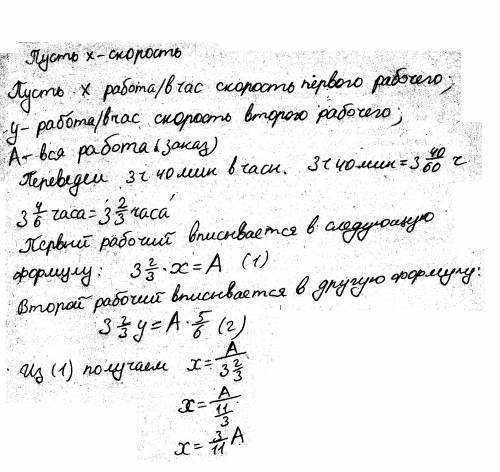 Пусть x-скорость
Пусть x работа/в час скорость первого рабочего;
y- работа/в час скорость второго рабочего;
A- вся работа (заказ)
Переведем 3 ч 40 мин в часы. 3 ч 40 мин = 3 40/60 ч
3 4/6 часа = 3 2/3 часа
Первый рабочий вписывается в следующую
формулу: 3 2/3 · x = A (1)
Второй рабочий вписывается в другую формулу:
3 2/3 y = A · 5/6 (2)
Из (1) получаем x = A / 3 2/3
x = A / 11/3
x = 3/11 A